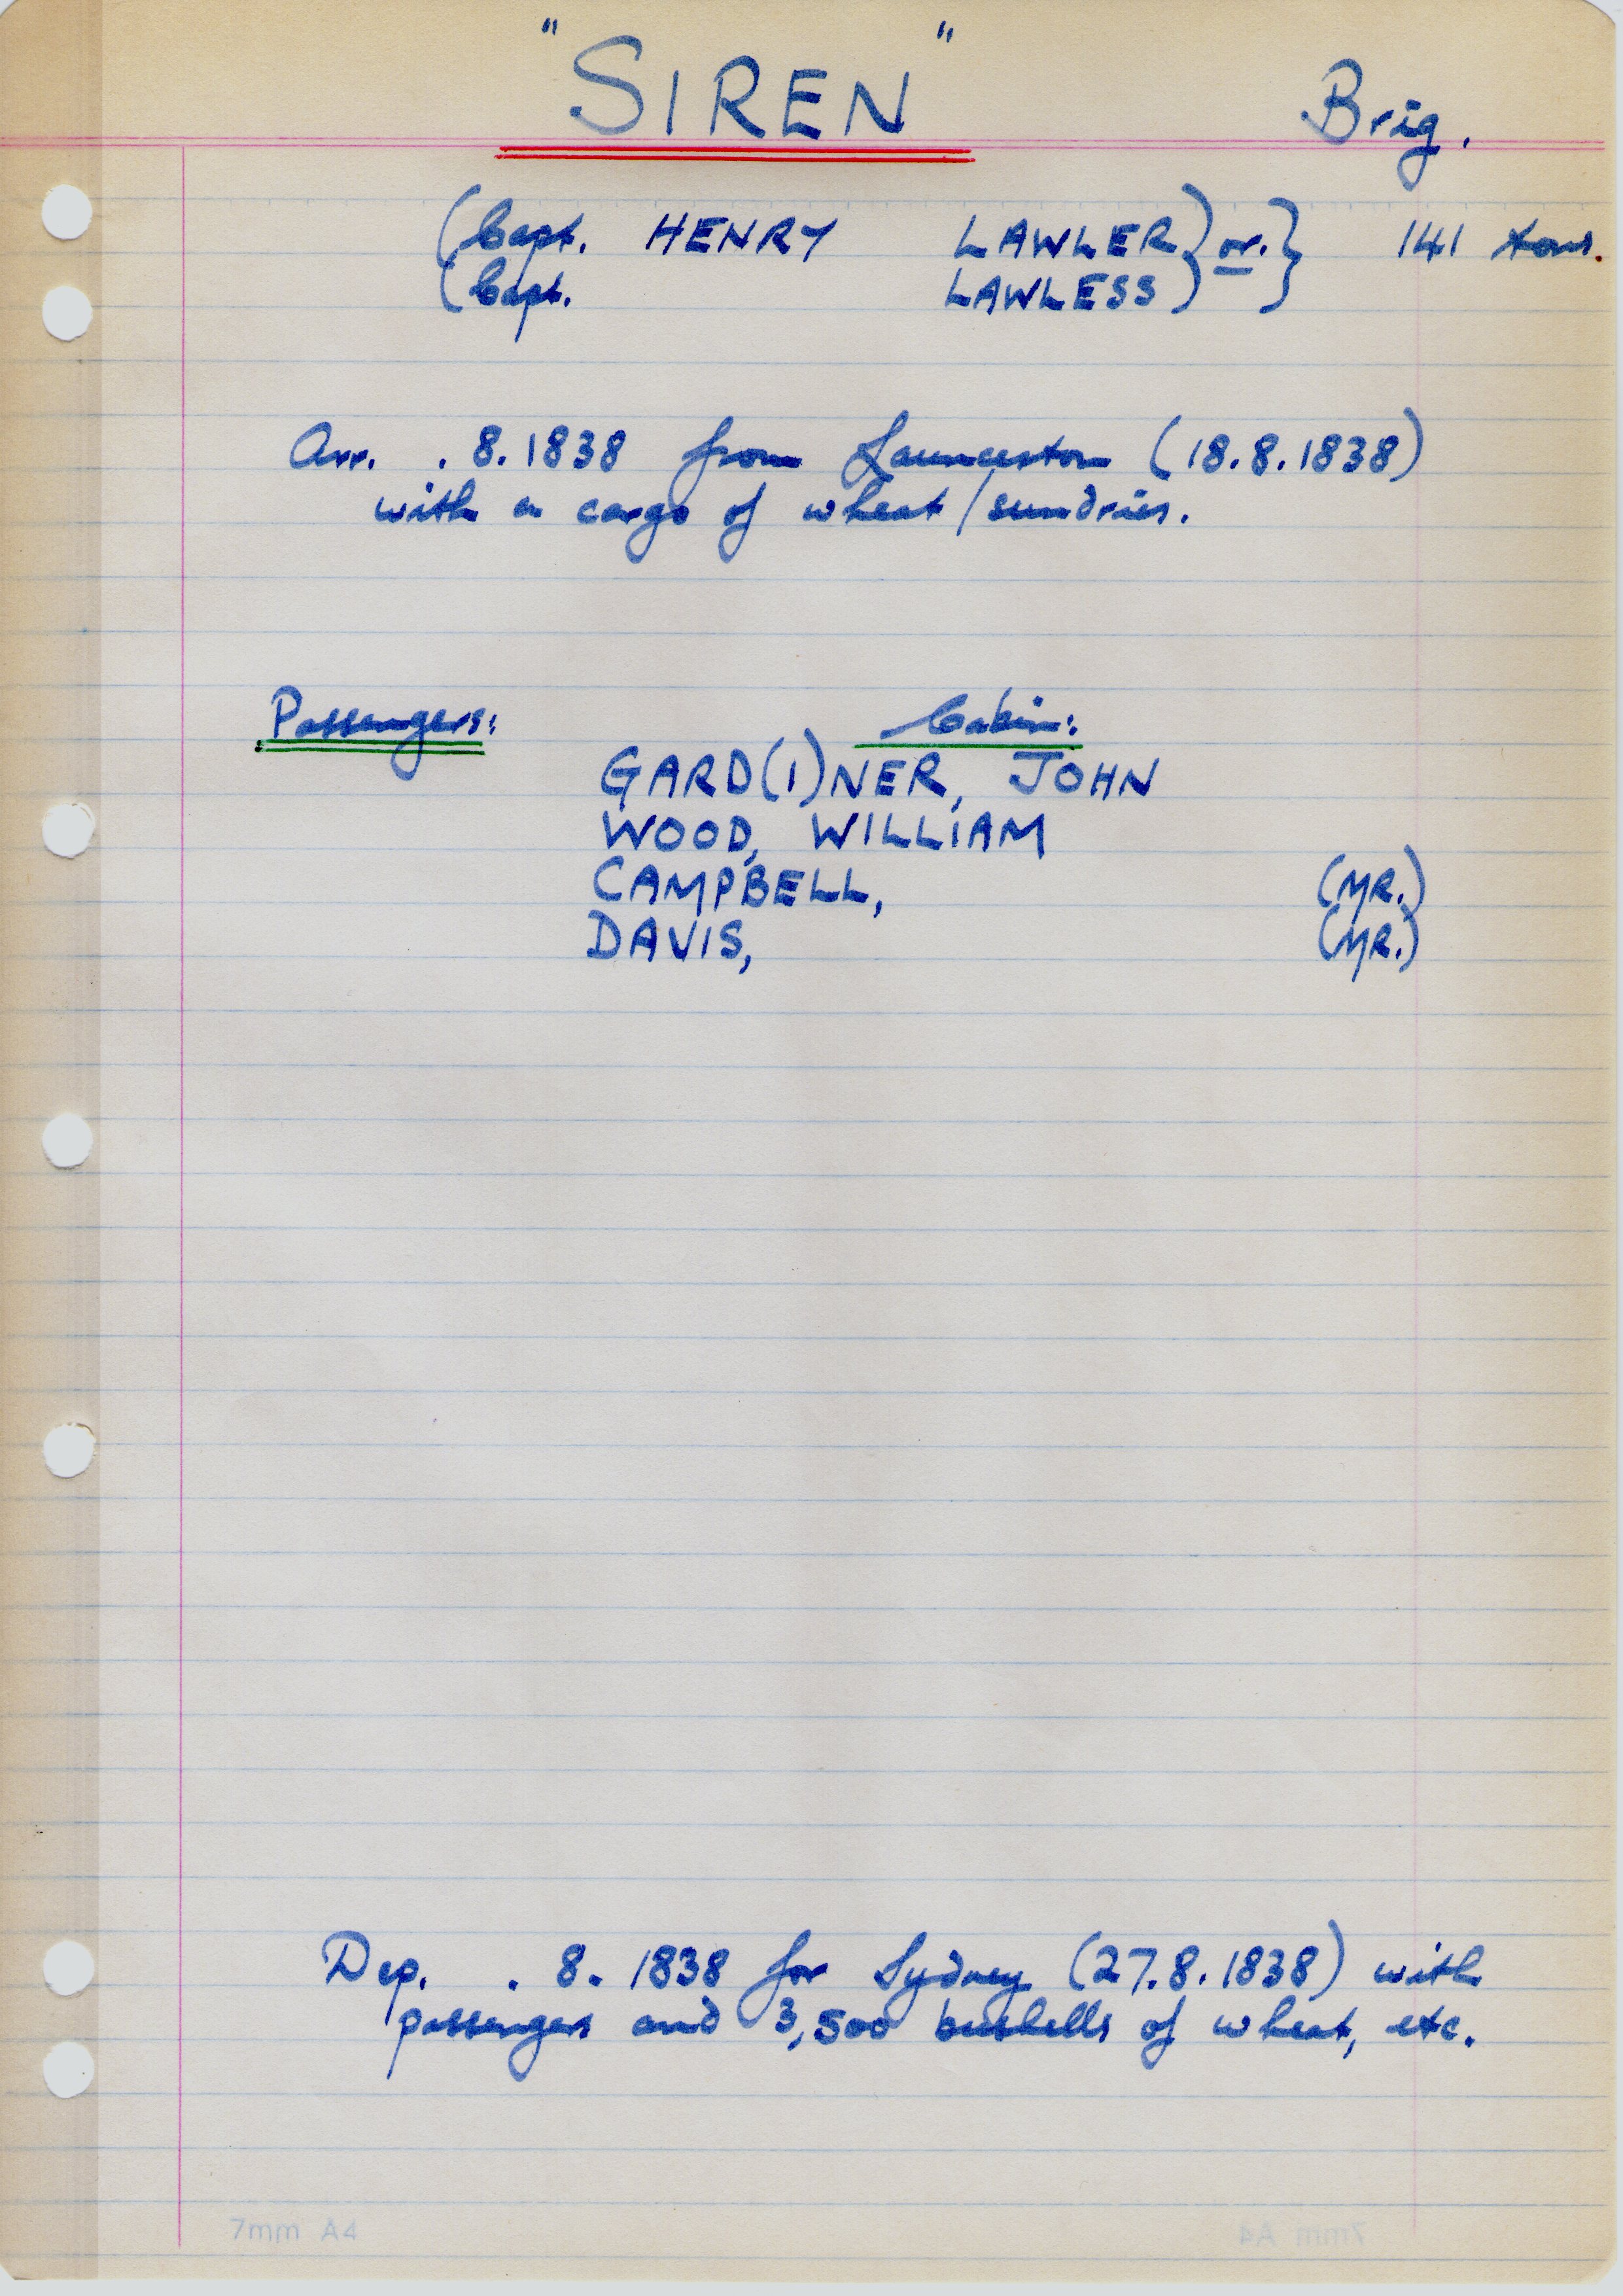 "SIREN" Brig.
(Capt. HENRY LAWLER) or. } 141 tons.
(Capt. LAWLESS) }
Arr. . 8. 1838 from Launceston (18.8.1838)
with a cargo of wheat/sundries.
Passengers: Cabin:
GARD(I)NER, JOHN
WOOD, WILLIAM
CAMPBELL, (MR.)
DAVIS, (MR.)
Dep. . 8. 1838 for Sydney (27.8.1838) with
passengers and 3,500 bushells of wheat, etc.
7mm A4